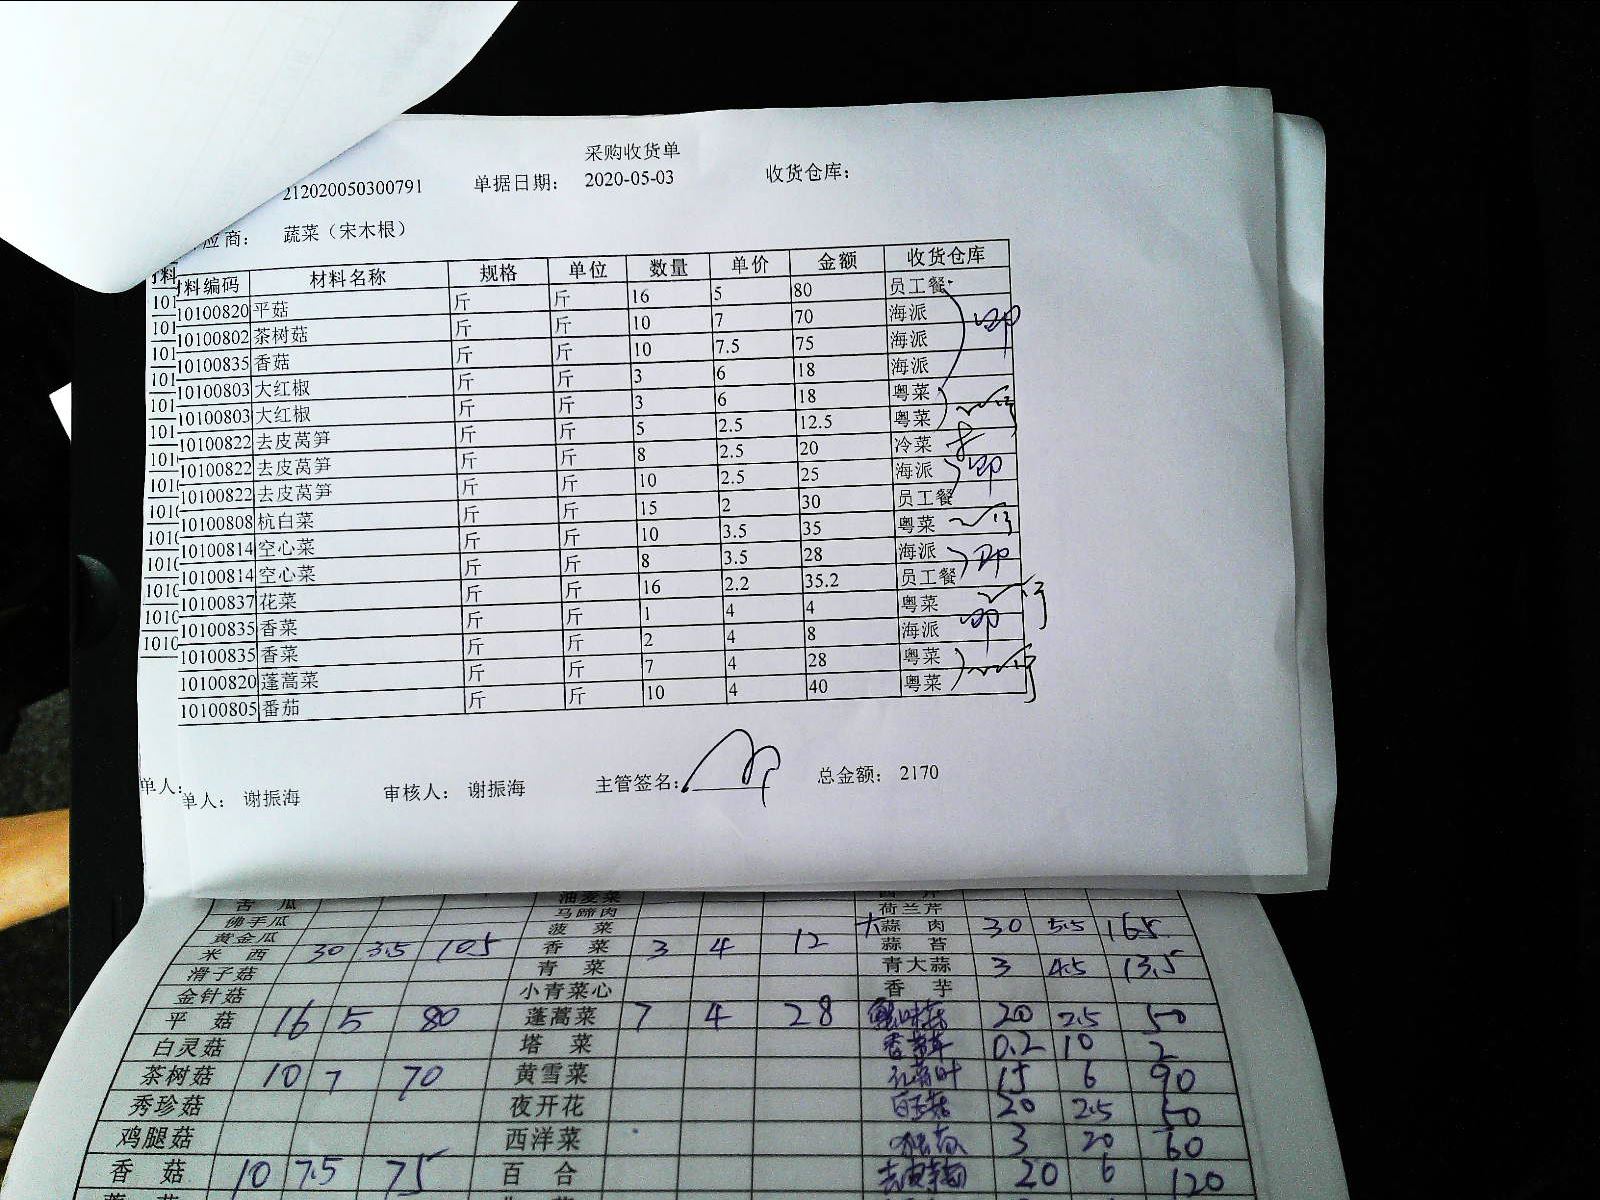 采购收货单
212020050300791 单据日期: 2020-05-03 收货仓库:
应商: 蔬菜（宋木根）
材料编码 材料名称 规格 单位 数量 单价 金额 收货仓库
10100820 平菇 斤 斤 16 5 80 员工餐
10100802 茶树菇 斤 斤 10 7 70 海派
10100835 香菇 斤 斤 10 7.5 75 海派
10100803 大红椒 斤 斤 3 6 18 海派
10100803 大红椒 斤 斤 3 6 18 粤菜
10100822 去皮莴笋 斤 斤 5 2.5 12.5 粤菜
10100822 去皮莴笋 斤 斤 8 2.5 20 冷菜
10100822 去皮莴笋 斤 斤 10 2.5 25 海派
10100808 杭白菜 斤 斤 15 2 30 员工餐
10100814 空心菜 斤 斤 10 3.5 35 粤菜
10100814 空心菜 斤 斤 8 3.5 28 海派
10100837 花菜 斤 斤 16 2.2 35.2 员工餐
10100835 香菜 斤 斤 1 4 4 粤菜
10100835 香菜 斤 斤 2 4 8 海派
10100820 蓬蒿菜 斤 斤 7 4 28 粤菜
10100805 番茄 斤 斤 10 4 40 粤菜
单人: 谢振海 审核人: 谢振海 主管签名: 总金额: 2170
苦瓜 油麦菜
佛手瓜 马蹄肉 荷兰芹
黄金瓜 菠菜 大蒜肉 30 5.5 165
米西 30 3.5 105 香菜 3 4 12 蒜苔
滑子菇 青菜 青大蒜 3 4.5 13.5
金针菇 小青菜心 香芋
平菇 16 5 80 蓬蒿菜 7 4 28 20 2.5 50
白灵菇 塔菜 0.2 10 2
茶树菇 10 7 70 黄雪菜 15 6 90
秀珍菇 夜开花 20 2.5 50
鸡腿菇 西洋菜 3 20 60
香菇 10 7.5 75 百合 20 6 120